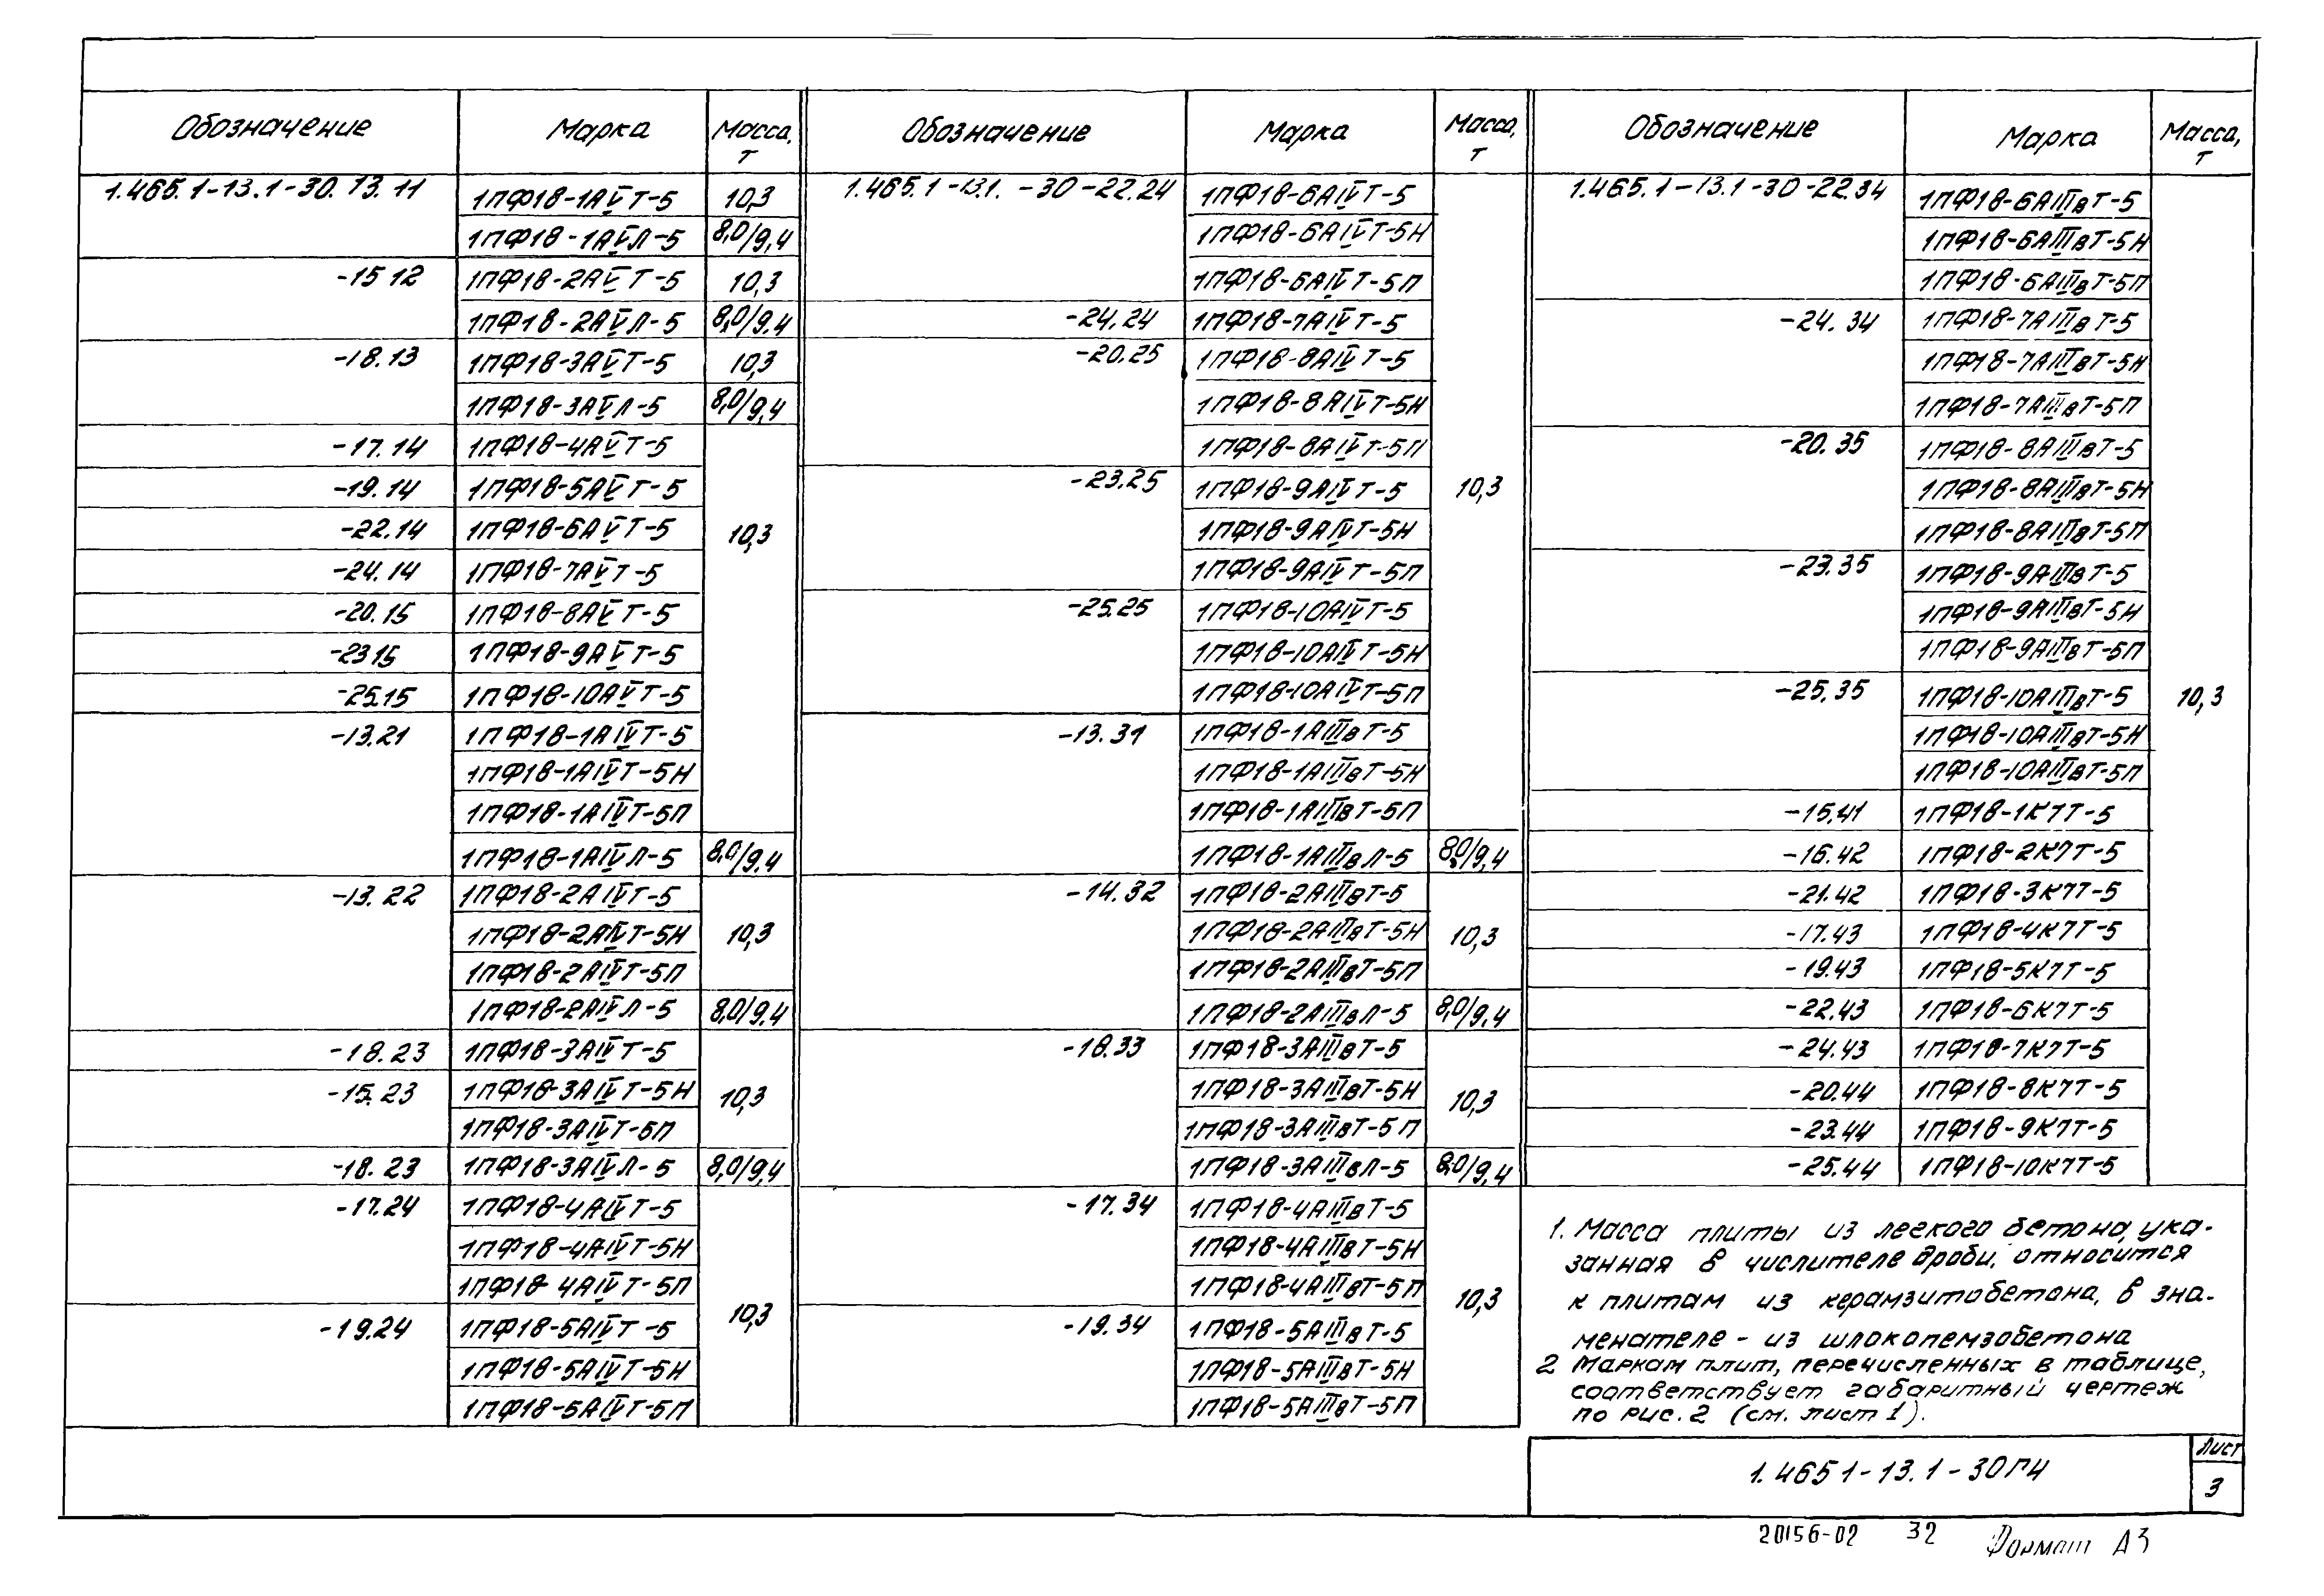 Обозначение Марка Масса, т
1.465.1-13.1-30.13.11 1ПФ18-1АVТ-5 10,3
1ПФ18-1АVЛ-5 8,0/9,4
-15 12 1ПФ18-2АVТ-5 10,3
1ПФ18-2АVЛ-5 8,0/9.4
-18.13 1ПФ18-3АVТ-5 10,3
1ПФ18-3АVЛ-5 8,0/9,4
-17.14 1ПФ18-4АVТ-5
-19.14 1ПФ18-5АVТ-5
-22.14 1ПФ18-6АVТ-5 10,3
-24.14 1ПФ18-7АVТ-5
-20.15 1ПФ18-8АVТ-5
-2315 1ПФ18-9АVТ-5
-25.15 1ПФ18-10АVТ-5
-13.21 1ПФ18-1АIVТ-5
1ПФ18-1АIVТ-5Н
1ПФ18-1АIVТ-5П
1ПФ18-1АIVЛ-5 8,0/9.4
-13.22 1ПФ18-2АIVТ-5
1ПФ18-2АIVТ-5Н 10,3
1ПФ18-2АIVТ-5П
1ПФ18-2АIVЛ-5 8,0/9.4
-18.23 1ПФ18-3АIVТ-5
-15.23 1ПФ18-3АIVТ-5Н 10,3
1ПФ18-3АIVТ-5П
-18.23 1ПФ18-3АIVЛ-5 8,0/9,4
-17.24 1ПФ18-4АIVТ-5
1ПФ18-4АIVТ-5Н
1ПФ18-4АIVТ-5П
-19.24 1ПФ18-5АIVТ-5 10,3
1ПФ18-5АIVТ-5Н
1ПФ18-5АIVТ-5П
Обозначение Марка Масса, т
1.465.1-13.1.-30-22.24 1ПФ18-6АIVТ-5
1ПФ18-6АIVТ-5Н
1ПФ18-6АIVТ-5П
-24.24 1ПФ18-7АIVТ-5
-20.25 1ПФ18-8АIVТ-5
1ПФ18-8АIVТ-5Н
1ПФ18-8АIVТ-5П
-23.25 1ПФ18-9АIVТ-5 10,3
1ПФ18-9АIVТ-5Н
1ПФ18-9АIVТ-5П
-25.25 1ПФ18-10АIVТ-5
1ПФ18-10АIVТ-5Н
1ПФ18-10АIVТ-5П
-13.31 1ПФ18-1АIIIвТ-5
1ПФ18-1АIIIвТ-5Н
1ПФ18-1АIIIвТ-5П
1ПФ18-1АIIIвЛ-5 8,0/9,4
-14.32 1ПФ18-2АIIIвТ-5
1ПФ18-2АIIIвТ-5Н 10,3
1ПФ18-2АIIIвТ-5П
1ПФ18-2АIIIвЛ-5 8,0/9,4
-18.33 1ПФ18-3АIIIвТ-5
1ПФ18-3АIIIвТ-5Н 10,3
1ПФ18-3АIIIвТ-5П
1ПФ18-3АIIIвЛ-5 8,0/9,4
-17.34 1ПФ18-4АIIIвТ-5
1ПФ18-4АIIIвТ-5Н
1ПФ18-4АIIIвТ-5П 10,3
-19.34 1ПФ18-5АIIIвТ-5
1ПФ18-5АIIIвТ-5Н
1ПФ18-5АIIIвТ-5П
Обозначение Марка Масса, т
1.465.1-13.1-30-22.34 1ПФ18-6АIIIвТ-5
1ПФ18-6АIIIвТ-5Н
1ПФ18-6АIIIвТ-5П
-24.34 1ПФ18-7АIIIвТ-5
1ПФ18-7АIIIвТ-5Н
1ПФ18-7АIIIвТ-5П
-20.35 1ПФ18-8АIIIвТ-5
1ПФ18-8АIIIвТ-5Н
1ПФ18-8АIIIвТ-5П
-23.35 1ПФ18-9АIIIвТ-5
1ПФ18-9АIIIвТ-5Н
1ПФ18-9АIIIвТ-5П
-25.35 1ПФ18-10АIIIвТ-5 10,3
1ПФ18-10АIIIвТ-5Н
1ПФ18-10АIIIвТ-5П
-15.41 1ПФ18-1К7Т-5
-16.42 1ПФ18-2К7Т-5
-21.42 1ПФ18-3К7Т-5
-17.43 1ПФ18-4К7Т-5
-19.43 1ПФ18-5К7Т-5
-22.43 1ПФ18-6К7Т-5
-24.43 1ПФ18-7К7Т-5
-20.44 1ПФ18-8К7Т-5
-23.44 1ПФ18-9К7Т-5
-25.44 1ПФ18-10К7Т-5
1. Масса плиты из легкого бетона, ука-
занная в числителе дроби, относится
к плитам из керамзитобетона, в зна-
менателе - из шлакопемзобетона
2 Маркам плит, перечисленных в таблице,
соответствует габаритный чертеж
по рис. 2 (см. лист 1).
1.4651-13.1-30ГЧ
Лист
3
20156-02 32 Формат А3